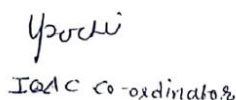 IQAC co-ordinator